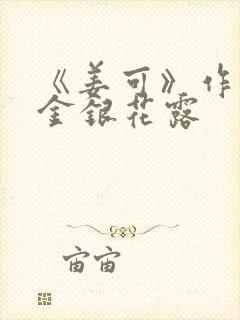 《姜可》作
金银花露
宙宙